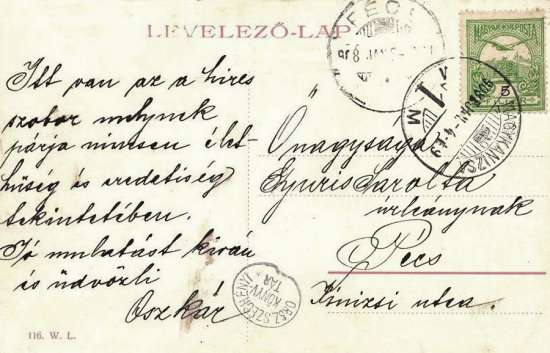 LEVELEZŐ-LAP
Itt van az a hires
szobor melynek
párja nincsen élet-
hűség és eredetiség
tekintetében.
Jó mulatást kiván
és üdvözli
Oszkár
Önagysága
Gyuris Sarolta
úrleánynak
Pécs
Kinizsi utca.
PÉCS
MAGY. KIR. POSTA
5
NAGYKANIZSA
ORSZ. SZÉCHÉNYI
KÖNYV-
TÁR
116. W. L.